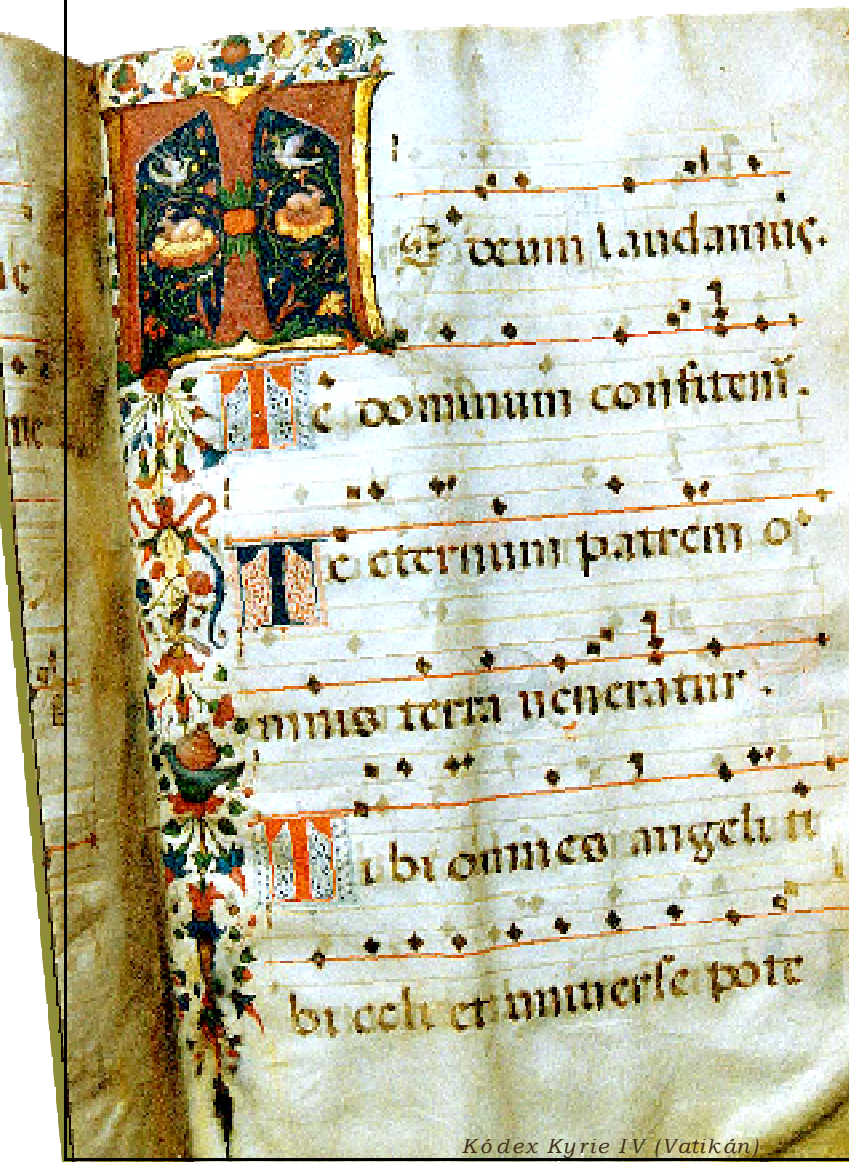 TE deum laudamus.
Te dominum confitem̃.
Te eternum patrem o
mnis terra ueneratur.
Tibi omnes angeli ti
bi celi et uniuerse pote
Kódex Kyrie IV (Vatikán)